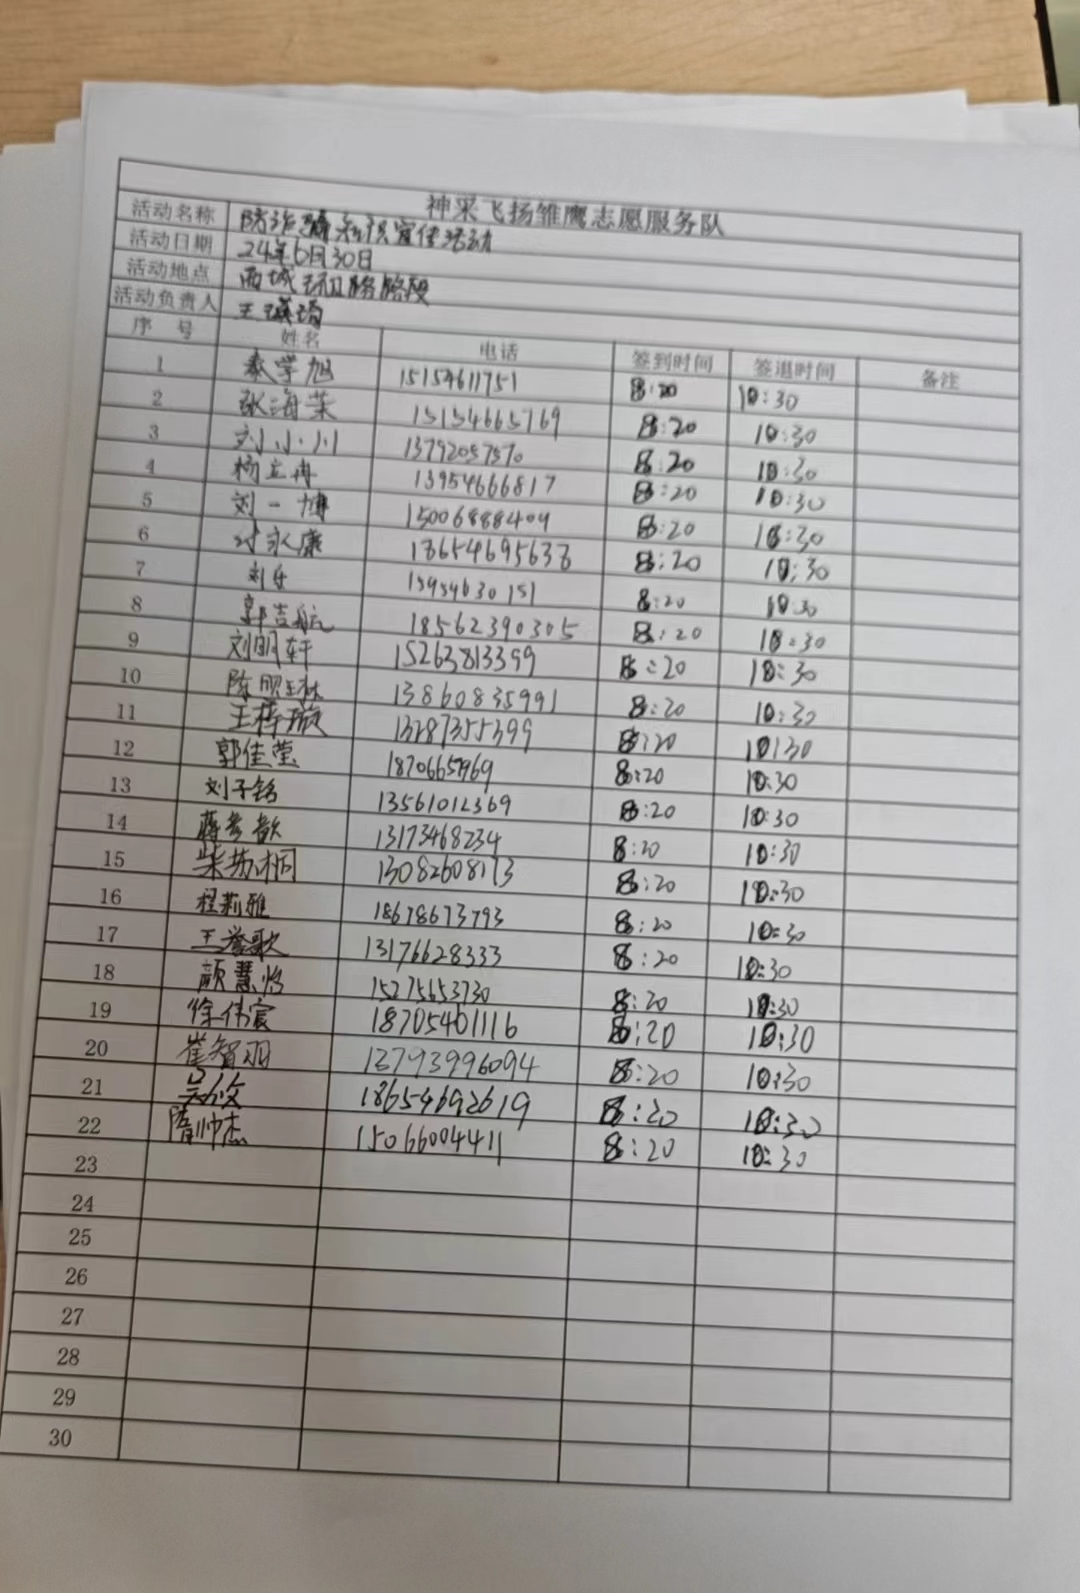 神采飞扬雏鹰志愿服务队
活动名称 防诈骗知识宣传活动
活动日期 24年6月30日
活动地点 西城 路路段
活动负责人 王瑛琦
序号 姓名 电话 签到时间 签退时间 备注
1 秦学旭 15154611751 8:20 10:30
2 张海荣 15154665769 8:20 10:30
3 刘小川 13792057570 8:20 10:30
4 杨立冉 13954666817 8:20 10:30
5 刘一博 15006888409 8:20 10:30
6 付永康 18654695638 8:20 10:30
7 刘乐 15954630151 8:20 10:30
8 郭吉航 18562390305 8:20 10:30
9 刘明轩 15263813399 8:20 10:30
10 陈 13860835991 8:20 10:30
11 王梓璇 13287355399 8:20 10:30
12 郭佳莹 8:20 10:30
13 刘子铭 13561012369 8:20 10:30
14 蒋 歆 13173468234 8:20 10:30
15 柴苏桐 13082608173 8:20 10:30
16 程莉雅 18678673793 8:20 10:30
17 王誉歌 13176628333 8:20 10:30
18 颜慧怡 15275653730 8:20 10:30
19 徐伟宸 18705401116 8:20 10:30
20 崔智羽 13793996094 8:20 10:30
21 吴 18654692619 8:20 10:30
22 隋帅杰 15066004411 8:20 10:30
23
24
25
26
27
28
29
30